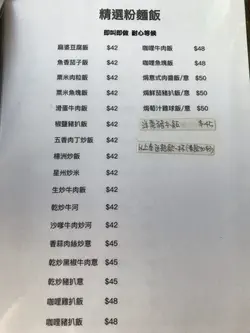 精選粉麵飯
即叫即做 耐心等候
麻婆豆腐飯 $42
魚香茄子飯 $42
粟米肉粒飯 $42
粟米魚塊飯 $42
滑蛋牛肉飯 $42
椒鹽豬扒飯 $42
五香肉丁炒飯 $42
楊洲炒飯 $42
星州炒米 $42
生炒牛肉飯 $42
乾炒牛河 $42
沙嗲牛肉炒河 $42
香蒜肉絲炒意 $45
乾炒黑椒牛肉意 $45
乾炒豬扒意 $45
咖喱雞扒飯 $48
咖喱豬扒飯 $48
咖哩牛肉飯 $48
咖喱魚塊飯 $48
焗意式肉醬飯/意 $50
焗鮮茄豬扒飯/意 $50
焗葡汁雞球飯/意 $50
$42